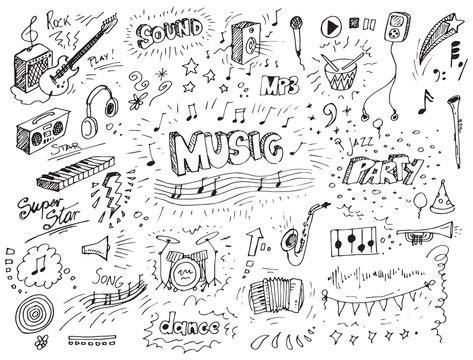 Rock
SOUND
PLAY!
MP3
STAR
MUSIC
JAZZ
PARTY
Super
Star
SONG
dance